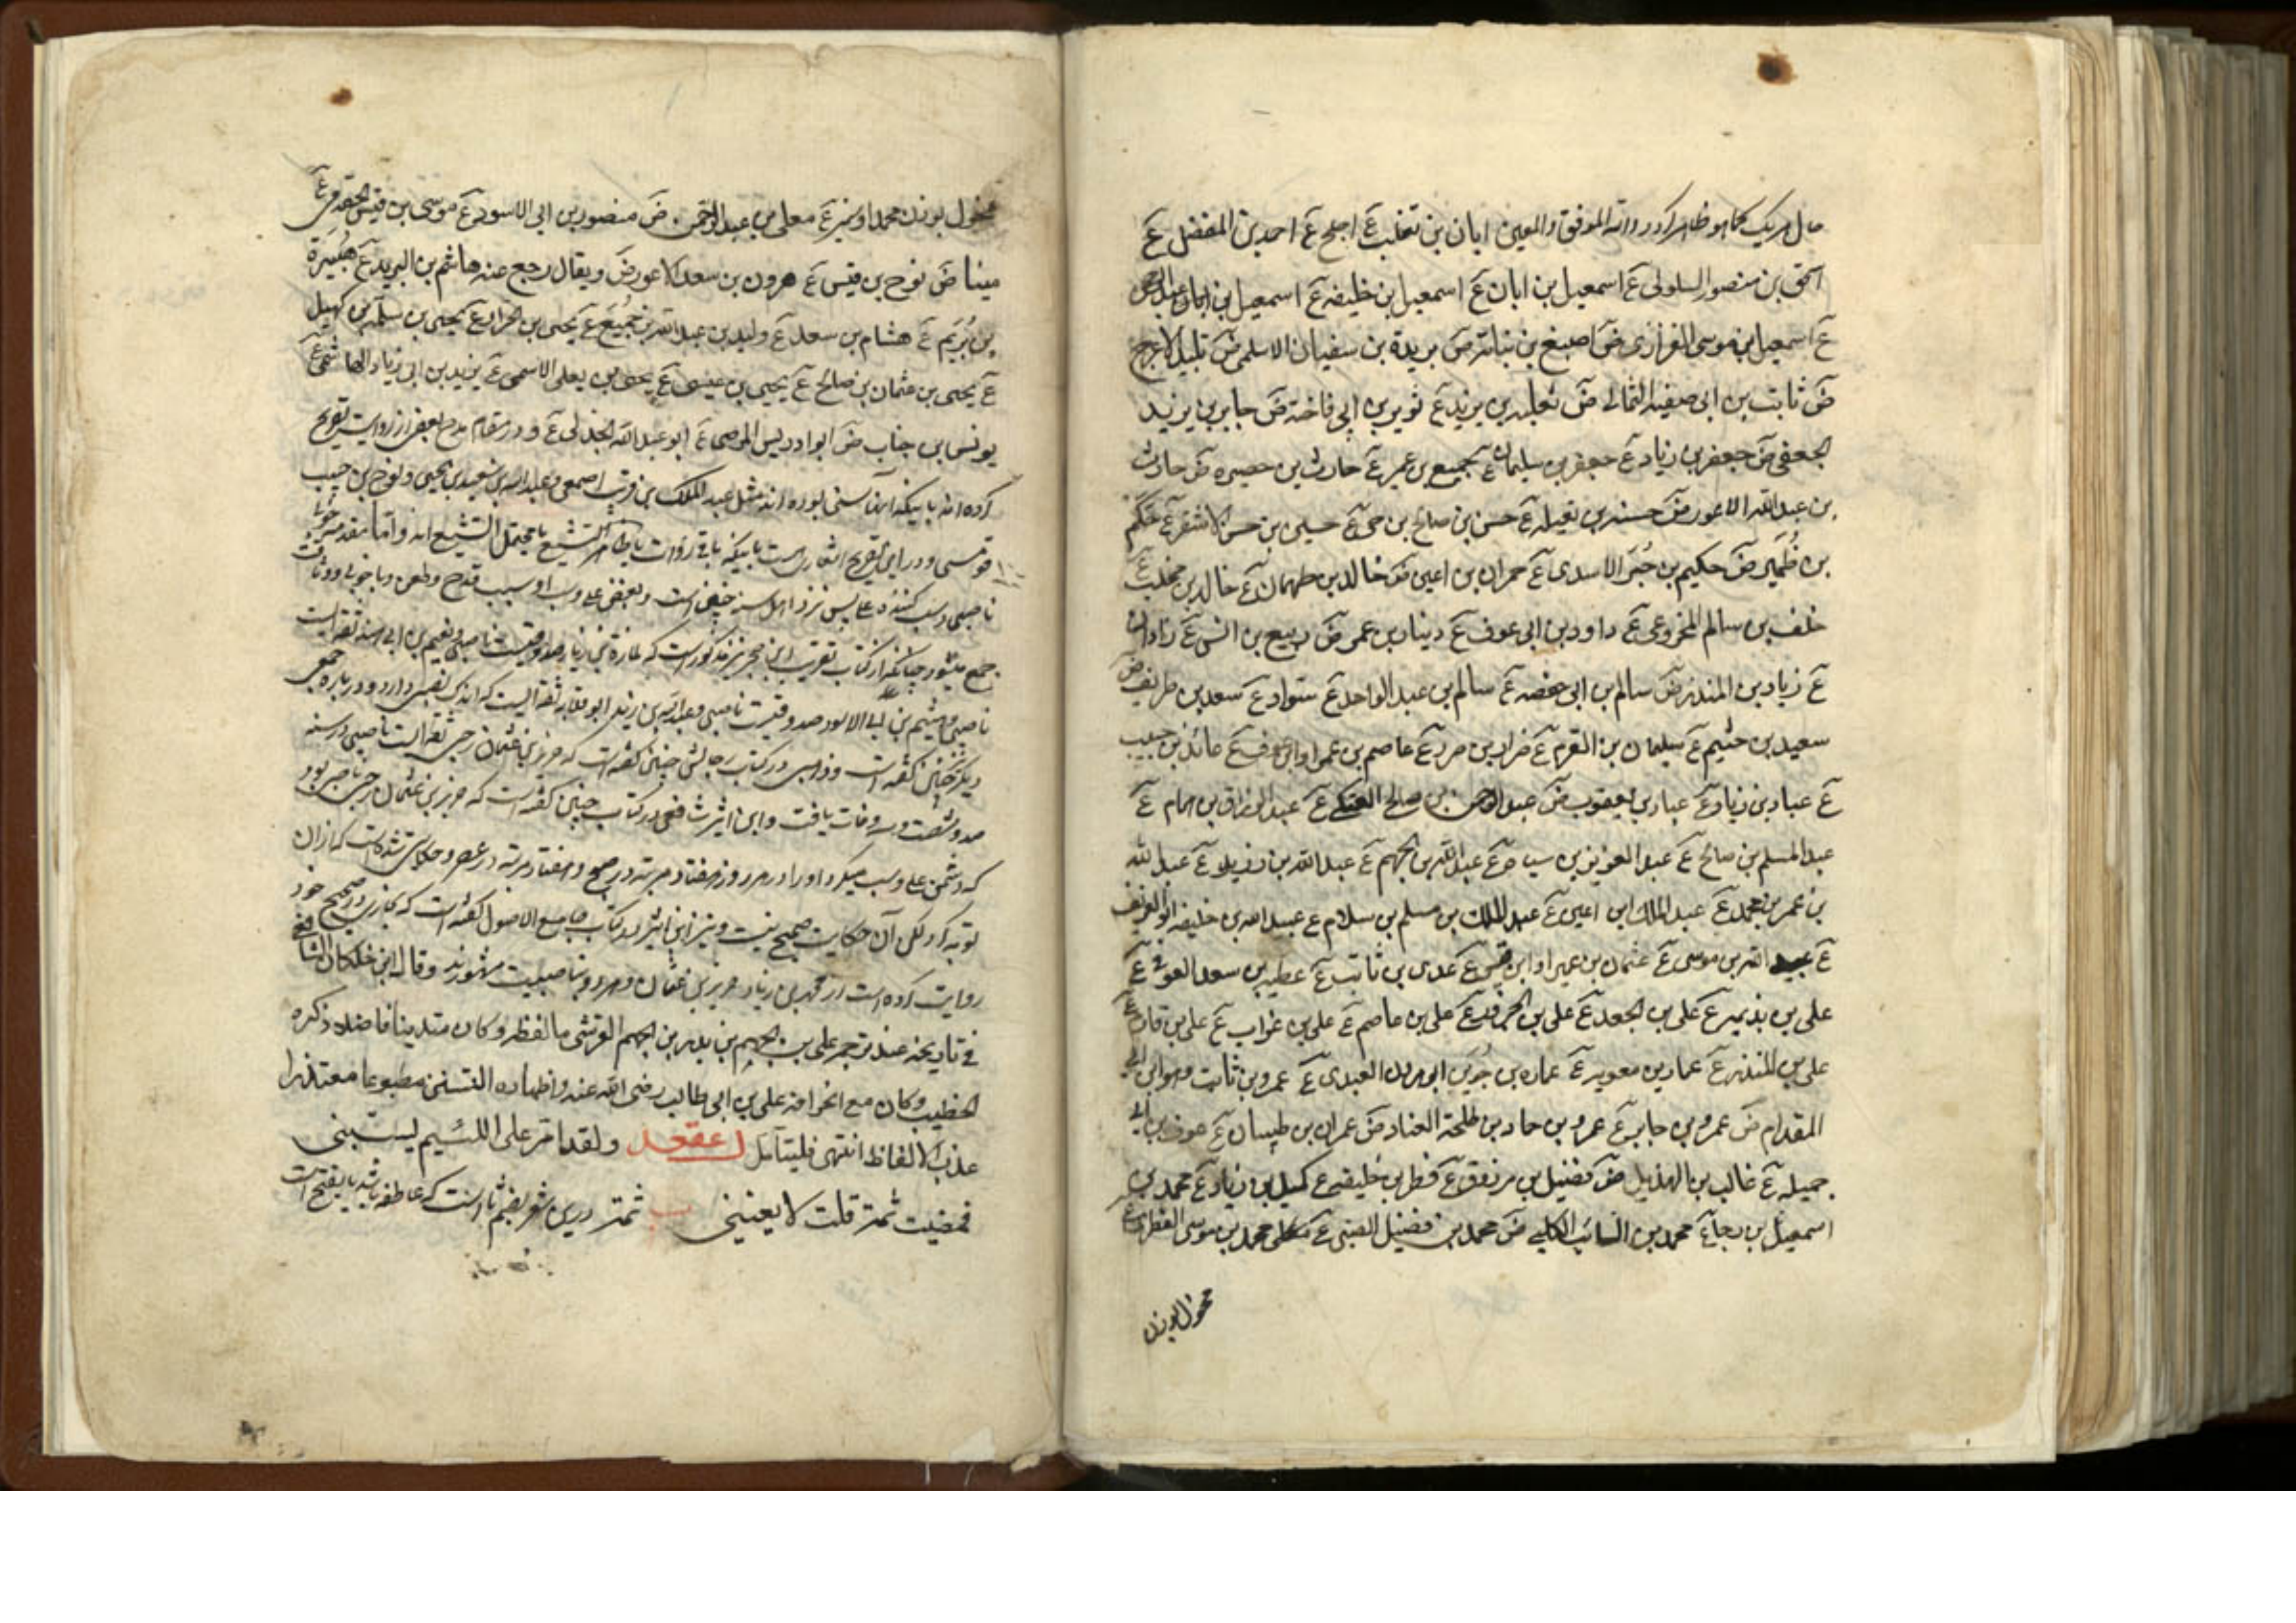 مال هر یک کما هو ظاهر کردد والله الموفق والمعین ابان بن تغلب عَ اجلح عَ احمد بن المفضل عَ
اسحق بن منصور السلولی عَ اسمعیل بن ابان عَ اسمعیل بن خلیفه عَ اسمعیل بن عبد الرحمن
عَ اسمعیل بن موسی الفزاری ضَ اصبغ بن نباته ضَ بریدة بن سفیان الاسلمی ضَ تلید الاعرج
ضَ ثابت بن ابی صفیه الثمالی ضَ ثعلبه بن یزید عَ ثویر بن ابی فاخته ضَ جابر بن یزید
الجعفی ضَ جعفر بن زیاد عَ جعفر بن سلیمان عَ جمیع بن عمیر عَ حارث بن حصیره ضَ حارث
بن عبد الله الاعور ضَ حسن بن صالح بن حی عَ حسین بن حسن الاشقر عَ حکم
بن ظُهَیر ضَ حکیم بن جُبَیر الاسدی عَ حمران بن اعین ضَ خالد بن طهمان عَ خالد بن مخلد عَ
خلف بن سالم المخرومی عَ داود بن ابی عوف عَ دینار بن عمر ضَ ربیع بن انس عَ زاذان
عَ زیاد بن المنذر ضَ سالم بن ابی حفصه عَ سالم بن عبد الواحد عَ سعد بن طریف ضَ
سعید بن خثیم عَ سلیمان بن القرم عَ ضرار بن صرد عَ عاصم بن عمرو عَ عائذ بن حبیب
عَ عباد بن زیاد عَ عباد بن یعقوب ضَ عبد الرحمن بن صالح العتکی عَ عبد الرزاق بن همام عَ
عبد السلام بن صالح عَ عبد العزیز بن سیاه عَ عبد الله بن الجهم عَ عبد الله بن عَ عبد الله
بن عمر بن محمد عَ عبد الملک بن اعین عَ عبد الملک بن مسلم بن سلام عَ عبید الله بن خلیفه ابو الغریف
عَ عبید الله بن موسی عَ عثمان بن عمیر او ابن قیس عَ عدی بن ثابت عَ عطیه بن سعد العوفی عَ
علی بن بذیمه عَ علی بن الجعد عَ علی بن عَ علی بن عاصم عَ علی بن غراب عَ علی بن قادم
علی بن المنذر عَ عمار بن معویه عَ عماره بن جُوَین ابی هرون العبدی عَ عمرو بن ثابت وهو ابن ابی
المقدام ضَ عمرو بن جابر عَ عمرو بن حماد بن طلحة القناد ضَ عمران بن ظبیان عَ عوف بن ابی
جمیله عَ غالب بن الهذیل ضَ فضیل بن مرزوق عَ فطر بن خلیفه عَ کمیل بن زیاد عَ محمد بن
اسمعیل بن رجاء عَ محمد بن السائب الکلبی ضَ محمد بن فضیل الضبی عَ محمد بن موسی الفطری عَ
مخول بوزن
مخول بوزن محمد عَ معلی بن عبد الرحمن ضَ منصور بن ابی الاسود عَ موسی بن قیس الحضرمی عَ
مینا ضَ نوح بن قیس عَ هرون بن سعد الاعور ضَ ویقال رجع عنه هاشم بن البرید عَ هُبَیرة
بن یُرَیم عَ هشام بن سعد عَ ولید بن عبد الله بن جُمَیع عَ یحیی بن الجزار عَ یحیی بن سلمه بن کهیل
عَ یحیی بن عثمان بن صالح عَ یحیی بن عیسی عَ یحیی بن یعلی الاسلمی عَ یزید بن ابی زیاد الهاشمی عَ
یونس بن خباب ضَ ابو ادریس المرهبی عَ ابو عبد الله الجدلی عَ و در مقام مدح بعضی از روات تصریح
کرده اند باینکه آنها سنی بوده اند مثل عبد الملک بن قریب اصمعی و عبد الله بن سعید بن یحیی و نوح بن حبیب
قومسی و در این تصریح اشعاریست باینکه باقی روات یا ظاهر التشیع یا محتمل التشیع اند و اما
ناصبی و سب کننده علی پس نزد اهل سنه خفیف است و بغض علی و سب او سبب قدح و طعن و با خوبی و وثاقت
جمع میشود چنانکه در کتاب تقریب ابن حجر نیز مذکور است که لمازة بن زبار صدوقیست ناصبی و نعیم بن ابی هند ثقه ایست
ناصبی و عبد الله بن زید ابو قلابه ثقه ایست که اندک نصبی دارد و در باره جمعی
دیگر چنین گفته است و ذهبی در کتاب رجالش چنین گفته است که حریز بن عثمان رحبی ثقه ایست ناصبی در سنه
صد و شصت و سه وفات یافت و ابن اثیر شافعی در کتاب چنین گفته است که حریز بن عثمان رحبی ناصبی بود
که دشمن علی و سب میکرد او را در هر روز هفتاد مرتبه در صبح و هفتاد مرتبه در عصر و حکایتی شده است که از ان
توبه کرد لکن آن حکایت صحیح نیست و نیز ابن اثیر در کتاب جامع الاصول گفته است که بخاری در صحیح خود
روایت کرده است از محمد بن زیاد و حریز بن عثمان و هر دو بناصبیت مشهورند وقال ابن خلکان الشافعی
فی تاریخه عند ترجمه علی بن الجهم بن بدر بن الجهم القرشی ما لفظه وکان متدینا فاضلا ذکره
الخطیب وکان مع انحرافه علی بن ابی طالب رضی الله عنه واظهاره التسنن مطبوعا مقتدرا
عذب الالفاظ انتهی فلیتامل ولقد امر علی اللئیم یسبنی
فمضیت ثمة قلت لا یعنینی ثمة درین شعر بضم ثا است که عاطفه باشد یا بفتح است